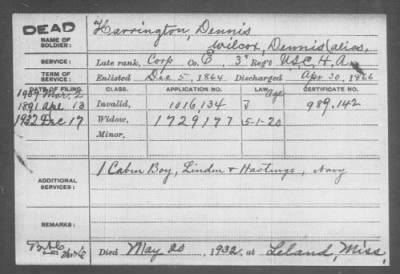 DEAD
NAME OF SOLDIER:
Harrington, Dennis
Wilcox, Dennis (alias,
SERVICE:
Late rank, Corp Co. C, 3" Reg't U.S.C.H.A.
TERM OF SERVICE:
Enlisted Dec 5, 1864 Discharged Apr 30, 1866
DATE OF FILING. CLASS. APPLICATION NO. LAW CERTIFICATE NO.
Mar. 2 Age
1891 Apl 13 Invalid, 1016,134 J 989,142
1932 Dec 17 Widow, 1729177 5-1-20
Minor,
ADDITIONAL SERVICES:
1 Cabin Boy, Linden & Hastings, Navy
REMARKS:
Died May 20, 1932, at Leland, Miss,